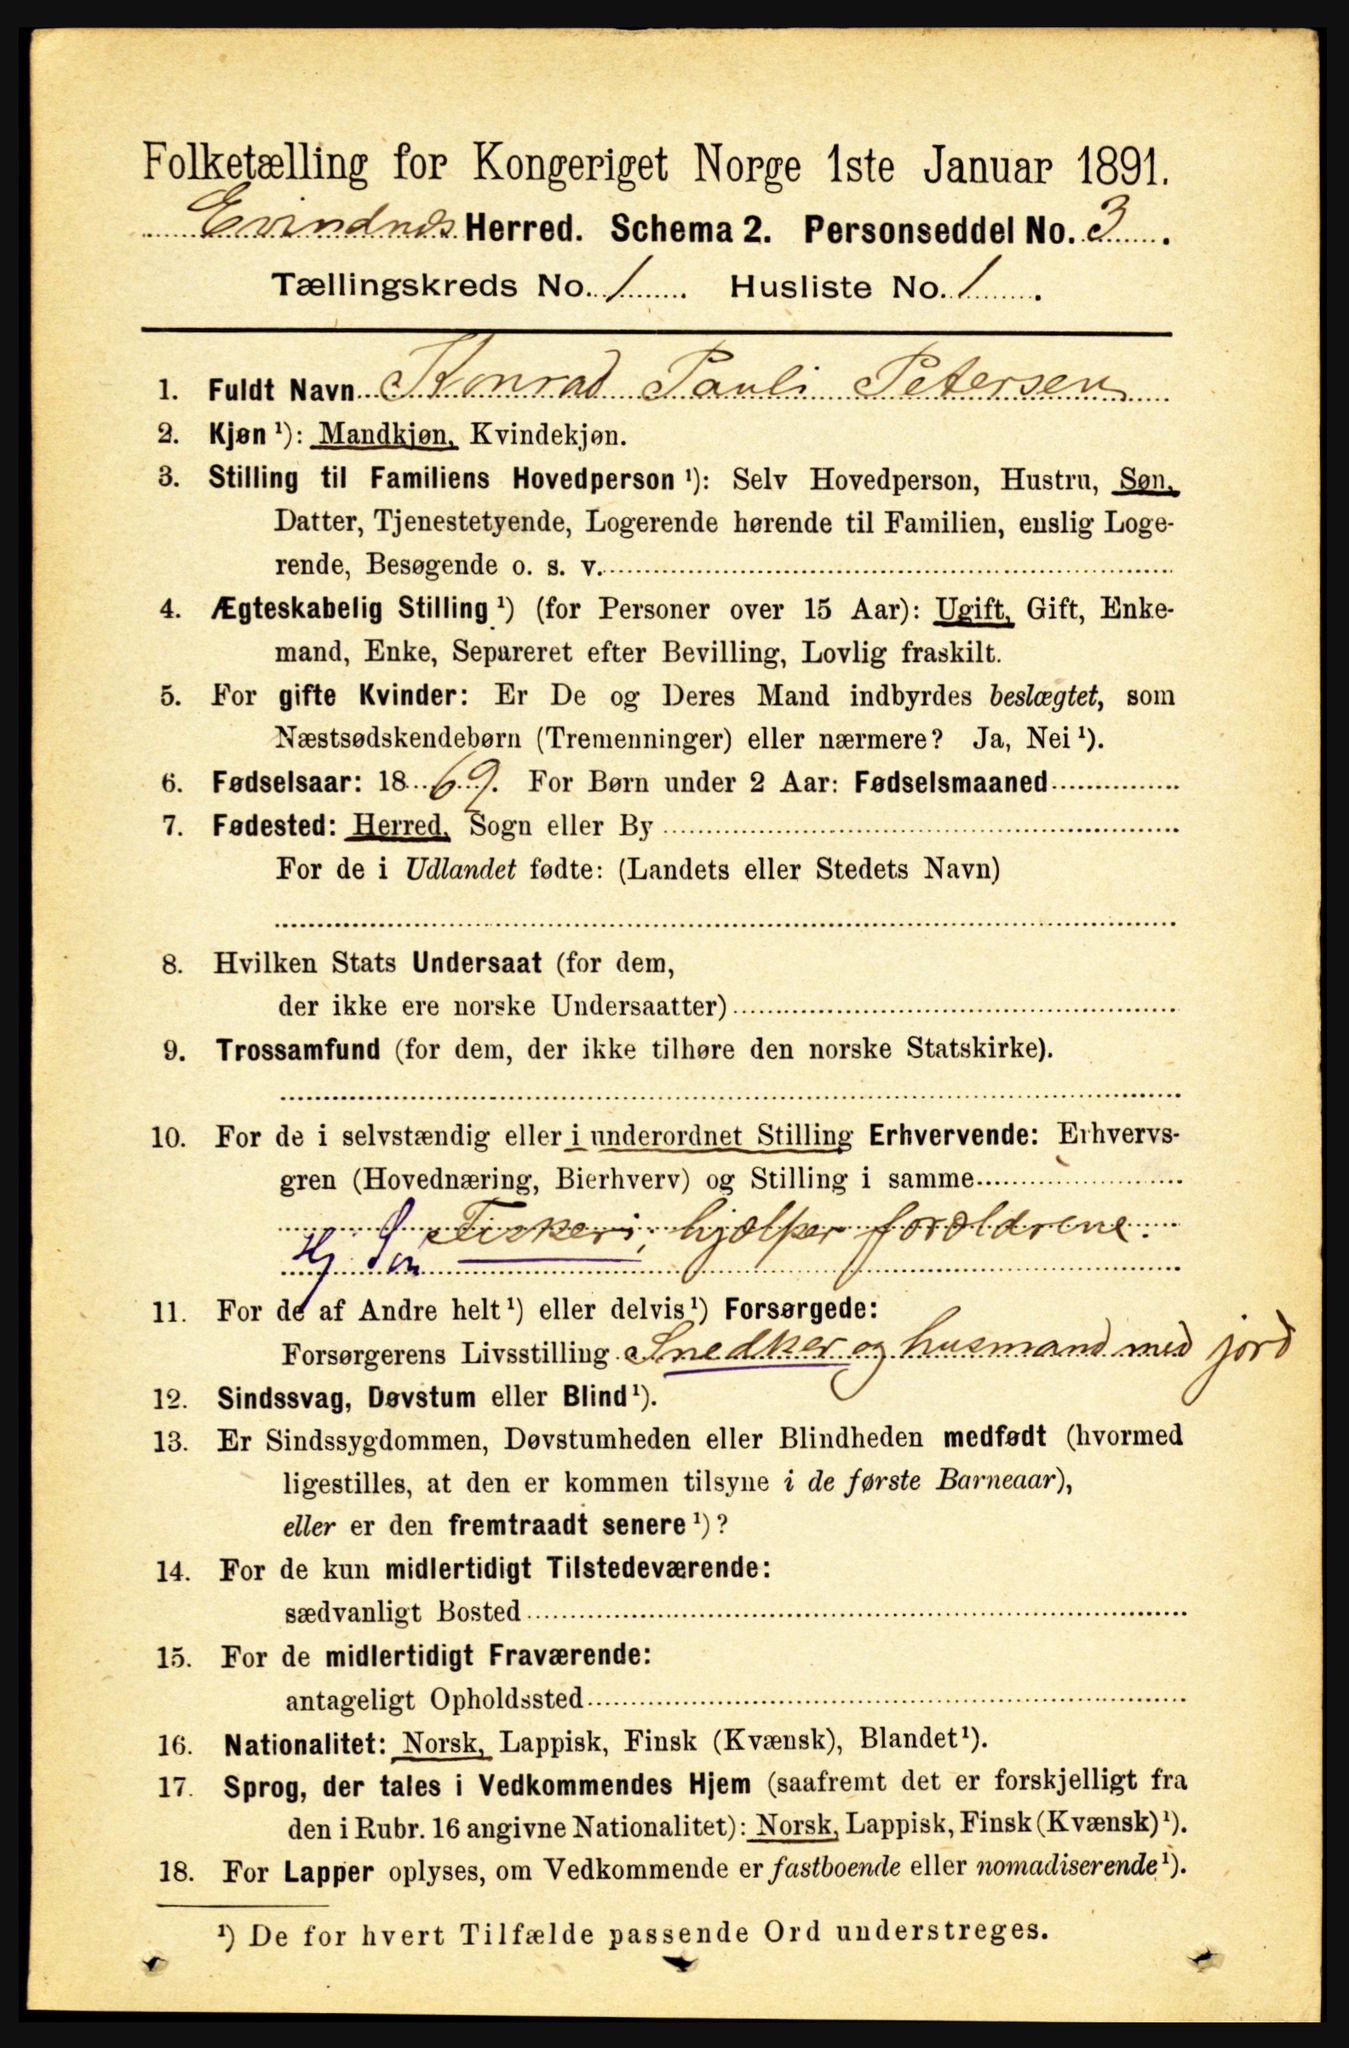 Folketælling for Kongeriget Norge 1ste Januar 1891.
Evindnes Herred. Schema 2. Personseddel No. 3.
Tællingskreds No. 1. Husliste No. 1.
1. Fuldt Navn Konrad Pauli Petersen
2. Kjøn¹): Mandkjøn, Kvindekjøn.
3. Stilling til Familiens Hovedperson¹): Selv Hovedperson, Hustru, Søn,
Datter, Tjenestetyende, Logerende hørende til Familien, enslig Loge-
rende, Besøgende o. s. v.
4. Ægteskabelig Stilling¹) (for Personer over 15 Aar): Ugift, Gift, Enke-
mand, Enke, Separeret efter Bevilling, Lovlig fraskilt.
5. For gifte Kvinder: Er De og Deres Mand indbyrdes beslægtet, som
Næstsødskendebørn (Tremenninger) eller nærmere? Ja, Nei¹).
6. Fødselsaar: 1869. For Børn under 2 Aar: Fødselsmaaned
7. Fødested: Herred, Sogn eller By
For de i Udlandet fødte: (Landets eller Stedets Navn)
8. Hvilken Stats Undersaat (for dem,
der ikke ere norske Undersaatter)
9. Trossamfund (for dem, der ikke tilhøre den norske Statskirke).
10. For de i selvstændig eller i underordnet Stilling Erhvervende: Erhvervs-
gren (Hovednæring, Bierhverv) og Stilling i samme
Fiskeri, hjælper forældrene.
Hj Søn
11. For de af Andre helt¹) eller delvis¹) Forsørgede:
Forsørgerens Livsstilling Snedker og husmand med jord
12. Sindssvag, Døvstum eller Blind¹).
13. Er Sindssygdommen, Døvstumheden eller Blindheden medfødt (hvormed
ligestilles, at den er kommen tilsyne i de første Barneaar),
eller er den fremtraadt senere¹)?
14. For de kun midlertidigt Tilstedeværende:
sædvanligt Bosted
15. For de midlertidigt Fraværende:
antageligt Opholdssted
16. Nationalitet: Norsk, Lappisk, Finsk (Kvænsk), Blandet¹).
17. Sprog, der tales i Vedkommendes Hjem (saafremt det er forskjelligt fra
den i Rubr. 16 angivne Nationalitet): Norsk, Lappisk, Finsk (Kvænsk)¹).
18. For Lapper oplyses, om Vedkommende er fastboende eller nomadiserende¹).
¹) De for hvert Tilfælde passende Ord understreges.